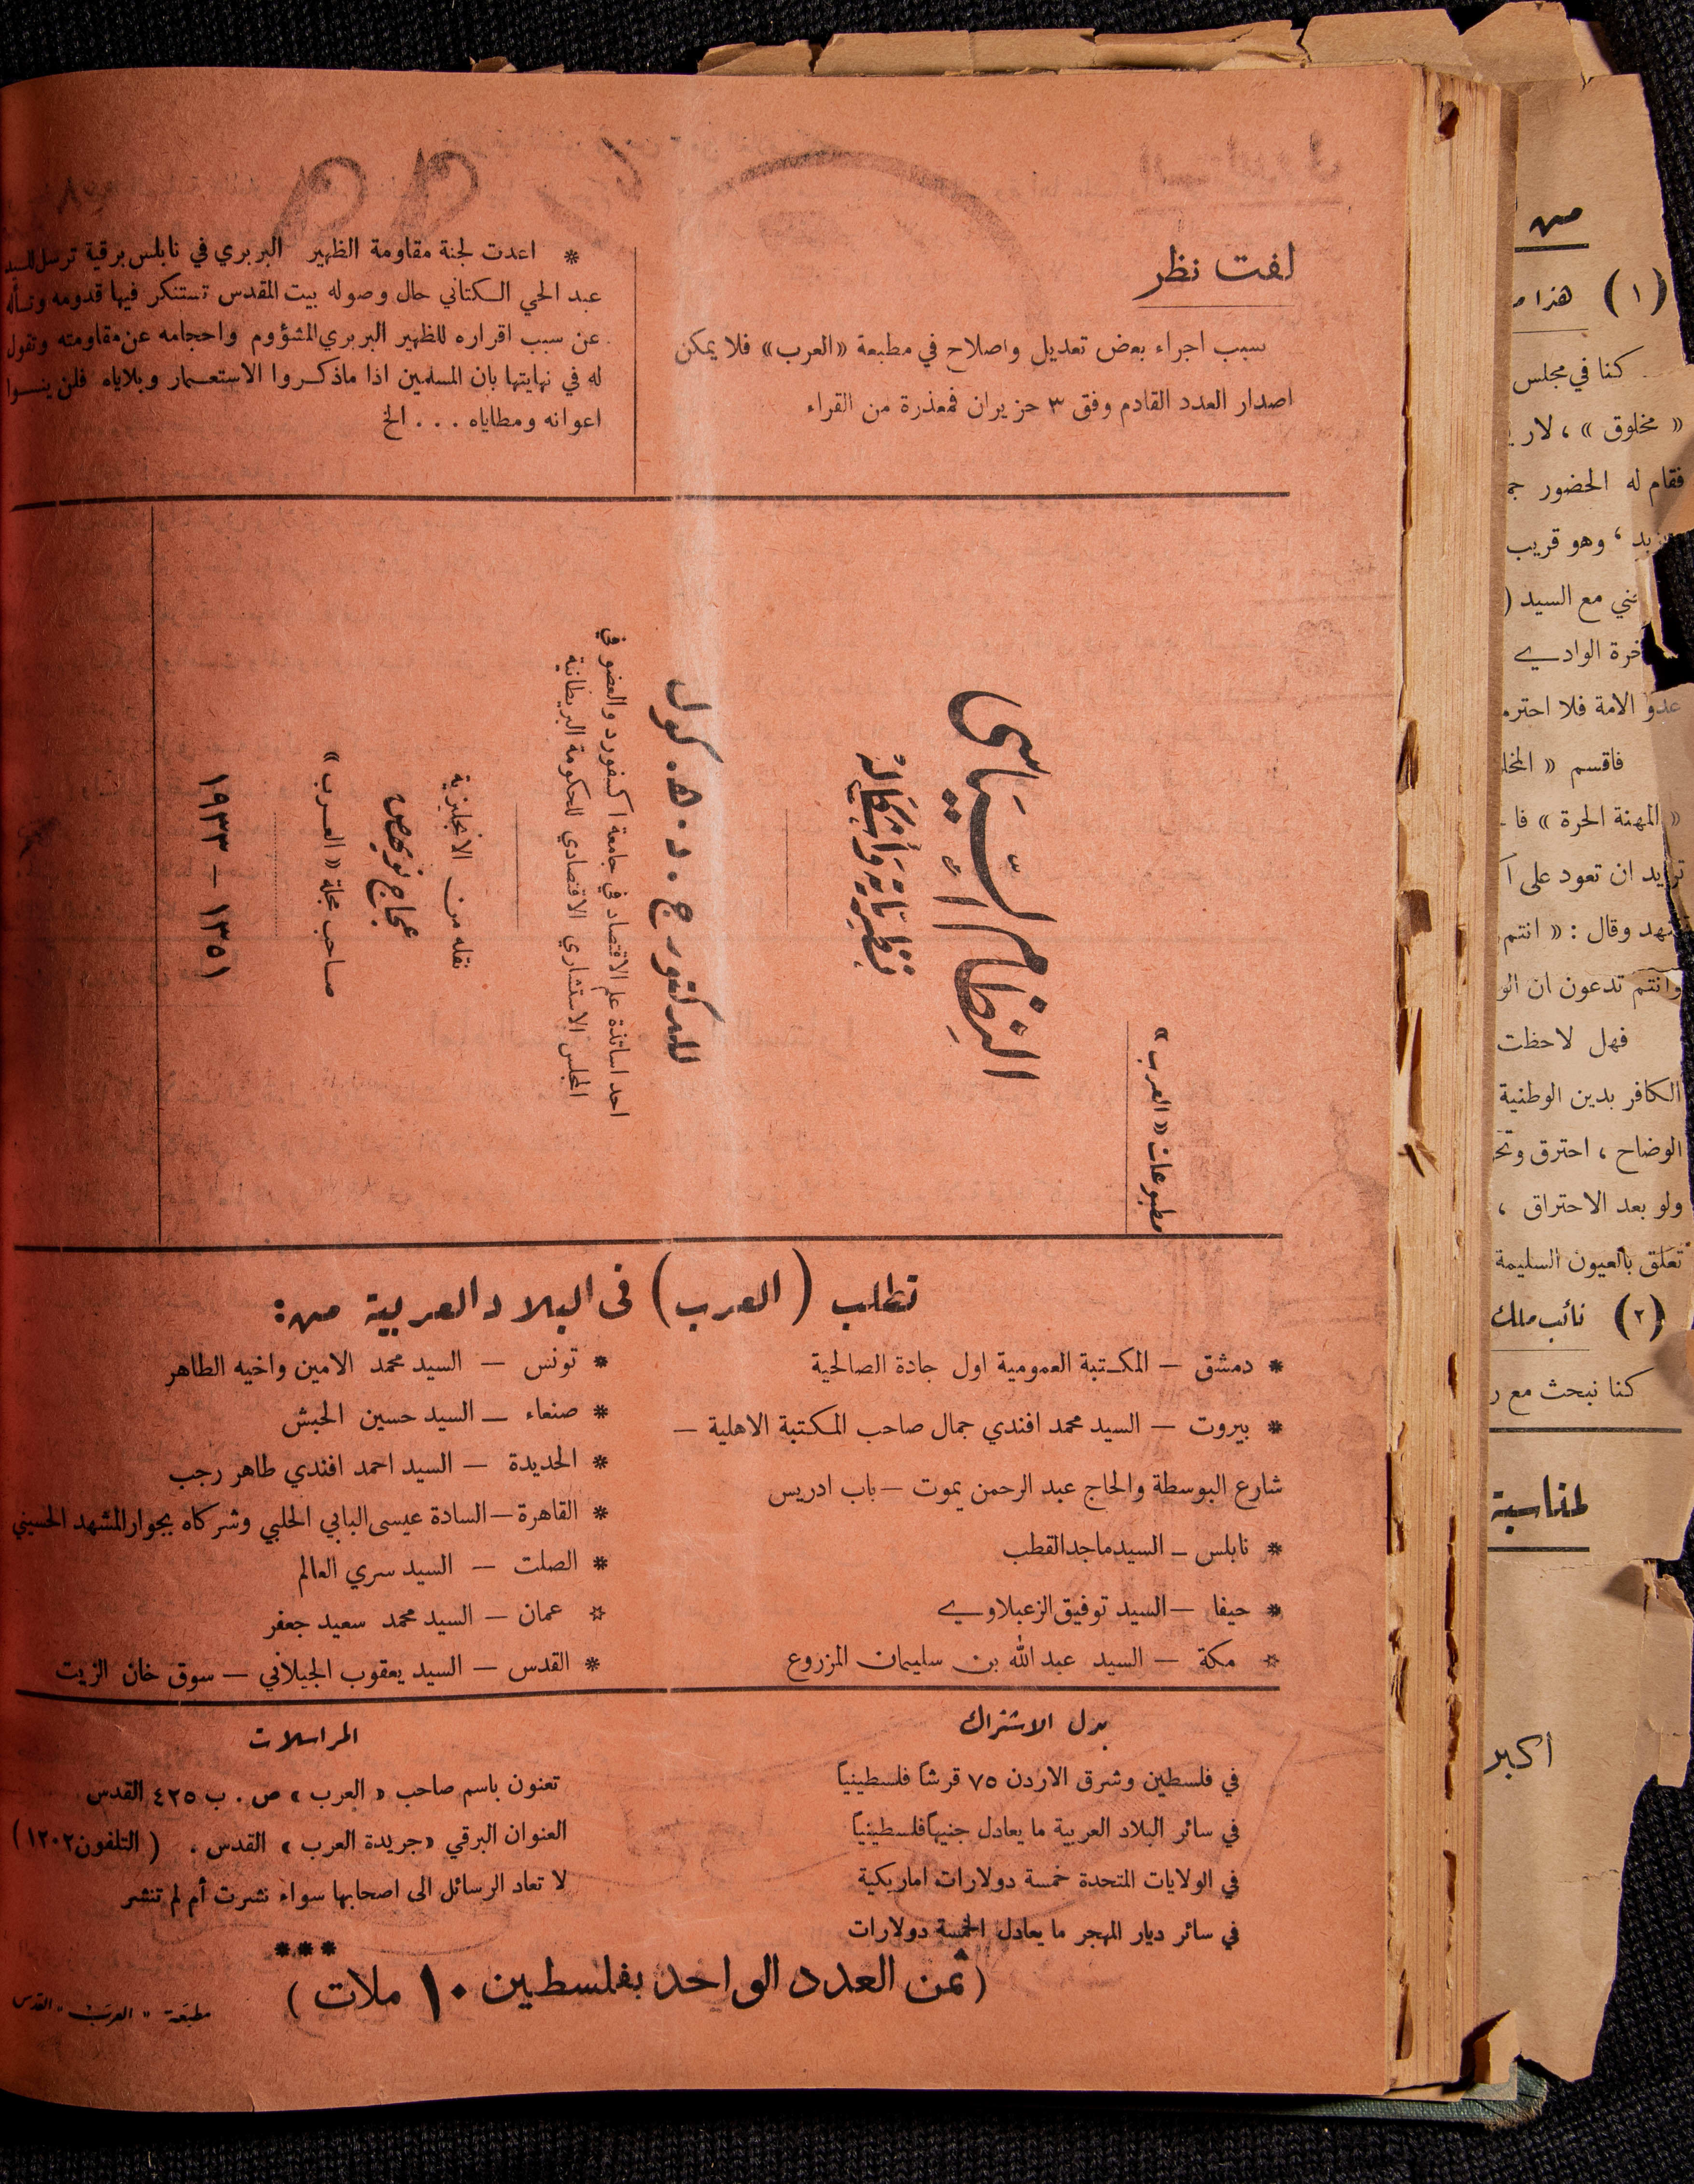 لفت نظر
بسبب اجراء بعض تعديل واصلاح في مطبعة «العرب» فلا يمكن
اصدار العدد القادم وفق ٣ حزيران فمعذرة من القراء
* اعدت لجنة مقاومة الظهير البربري في نابلس برقية ترسل للسيد
عبد الحي الكتاني حال وصوله بيت المقدس تستنكر فيها قدومه وتسأله
عن سبب اقراره للظهير البربري المشؤوم واحجامه عن مقاومته وتقول
له في نهايتها بان المسلمين اذا ماذكروا الاستعمار وبلاياه فلن ينسوا
اعوانه ومطاياه . . . الخ
مطبوعات «العرب»
النظام السياسي
للدكتور ج . د . ه . كول
احد اساتذة علم الاقتصاد في جامعة اكسفورد والعضو في
المجلس الاستشاري الاقتصادي للحكومة البريطانية
نقله من الانجليزية
عجاج نويهض
صاحب مجلة «العرب»
١٣٥١ – ١٩٣٣
تطلب (العرب) في البلاد العربية من:
* دمشق – المكتبة العمومية اول جادة الصالحية
* بيروت – السيد محمد افندي جمال صاحب المكتبة الاهلية –
شارع البوسطة والحاج عبد الرحمن يموت – باب ادريس
* نابلس – السيد ماجد القطب
* حيفا – السيد توفيق الزعبلاوي
* مكة – السيد عبد الله بن سليمان المزروع
* تونس – السيد محمد الامين واخيه الطاهر
* صنعاء – السيد حسين الحبش
* الحديدة – السيد احمد افندي طاهر رجب
* القاهرة – السادة عيسى البابي الحلبي وشركاه بجوار المشهد الحسيني
* الصلت – السيد سري العالم
* عمان – السيد محمد سعيد جعفر
* القدس – السيد يعقوب الجيلاني – سوق خان الزيت
بدل الاشتراك
في فلسطين وشرق الاردن ٧٥ قرشاً فلسطينياً
في سائر البلاد العربية ما يعادل جنيهاً فلسطينياً
في الولايات المتحدة خمسة دولارات اماريكية
في سائر ديار المهجر ما يعادل الخمسة دولارات
المراسلات
تعنون باسم صاحب «العرب» ص . ب ٤٢٥ القدس
العنوان البرقي «جريدة العرب» القدس . (التلفون ١٢٠٢)
لا تعاد الرسائل الى اصحابها سواء نشرت أم لم تنشر
***
(ثمن العدد الواحد بفلسطين ١٠ ملات)
مطبعة «العرب» القدس
من
(١) هذا
كنا في مجلس
« مخلوق » ،
فقام له الحضور
، وهو قريب
مع السيد (
الوادي
عدو الامة فلا
فاقسم «
« المهنة الحرة »
تريد ان تعود على
وقال : « انتم
وانتم تدعون ان
فهل لاحظت
الكافر بدين الوطنية
الوضاح ، احترق
ولو بعد الاحتراق ،
تعلق بالعيون السليمة
(٢) نائب ملك
كنا نبحث مع
لمناسبة
اكبر